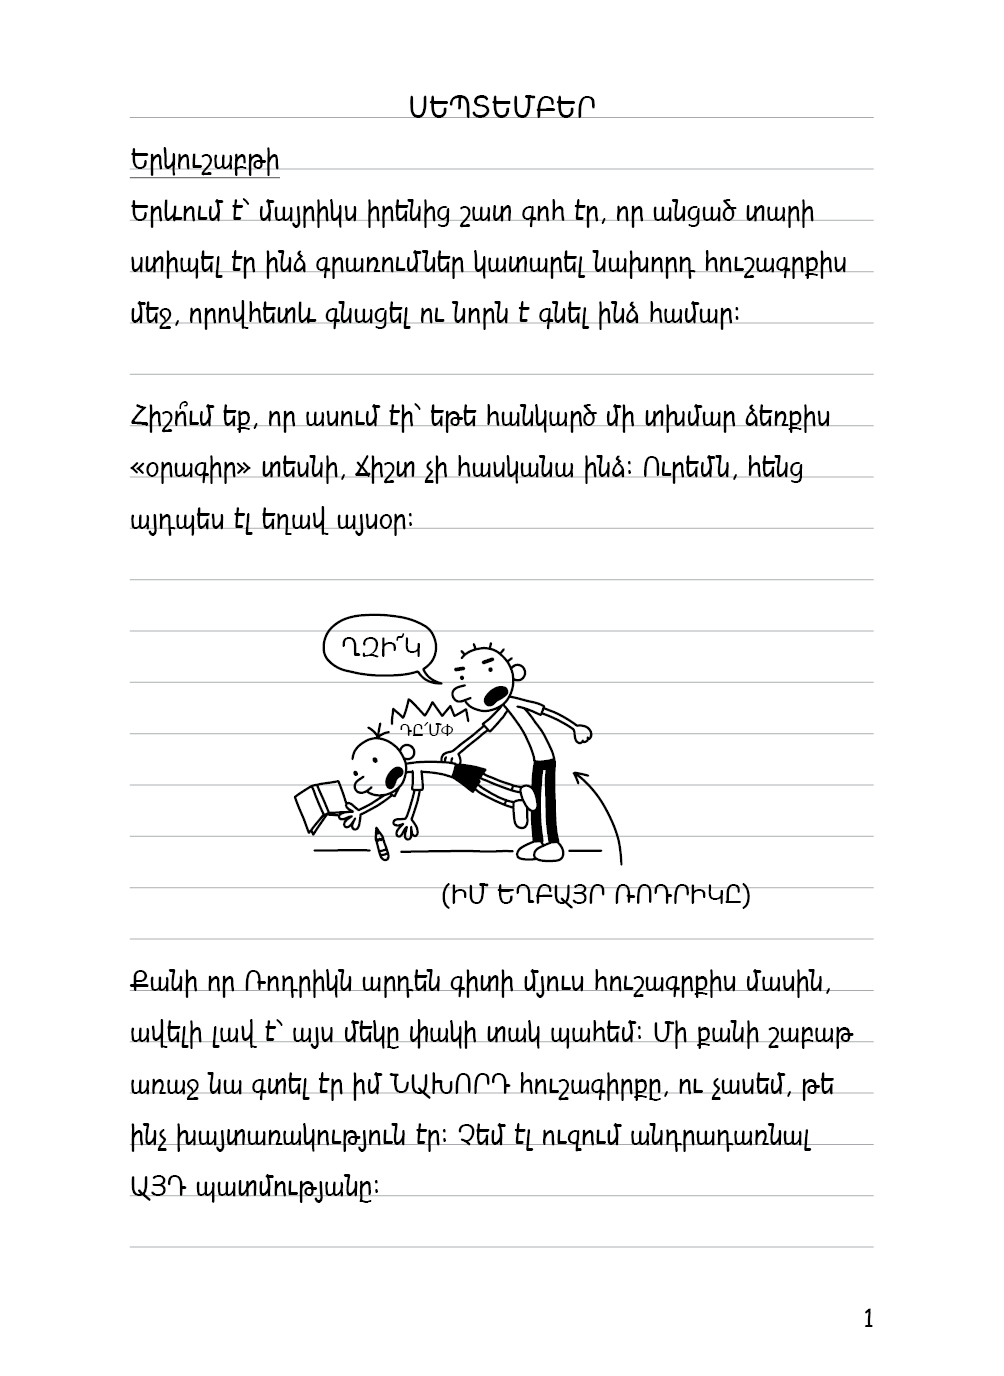 ՍԵՊՏԵՄԲԵՐ
Երկուշաբթի
Երևում է՝ մայրիկս իրենից շատ գոհ էր, որ անցած տարի
ստիպել էր ինձ գրառումներ կատարել նախորդ հուշագրքիս
մեջ, որովհետև գնացել ու նորն է գնել ինձ համար։
Հիշո՞ւմ եք, որ ասում էի՝ եթե հանկարծ մի տխմար ձեռքիս
«օրագիր» տեսնի, ճիշտ չի հասկանա ինձ։ Ուրեմն, հենց
այդպես էլ եղավ այսօր։
ՂԶԻ՜Կ
ԴԸ՜ՄՓ
(ԻՄ ԵՂԲԱՅՐ ՌՈԴՐԻԿԸ)
Քանի որ Ռոդրիկն արդեն գիտի մյուս հուշագրքիս մասին,
ավելի լավ է՝ այս մեկը փակի տակ պահեմ։ Մի քանի շաբաթ
առաջ նա գտել էր իմ ՆԱԽՈՐԴ հուշագիրքը, ու չասեմ, թե
ինչ խայտառակություն էր։ Չեմ էլ ուզում անդրադառնալ
ԱՅԴ պատմությանը։
1